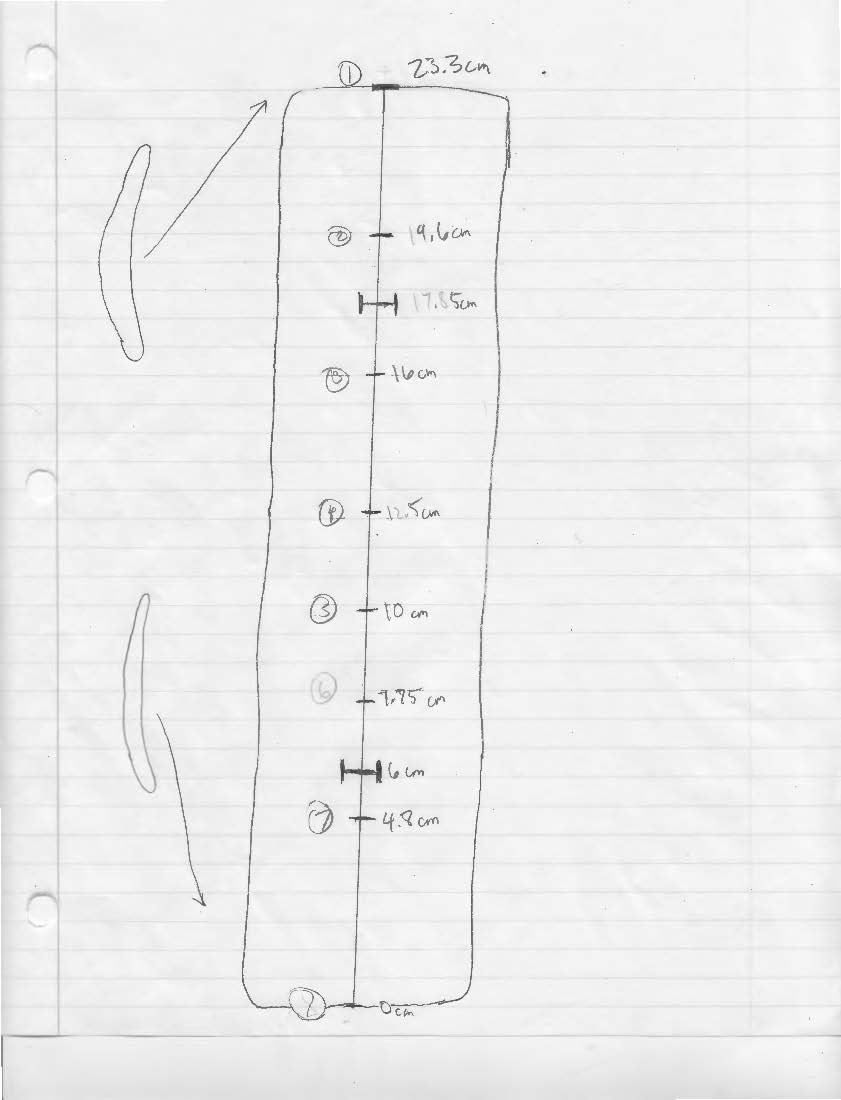 ① 23.3cm
② 19.6cm
17.85cm
③ 16cm
④ 12.5cm
⑤ 10 cm
⑥ 7.75 cm
6cm
⑦ 4.8cm
⑧ 0cm